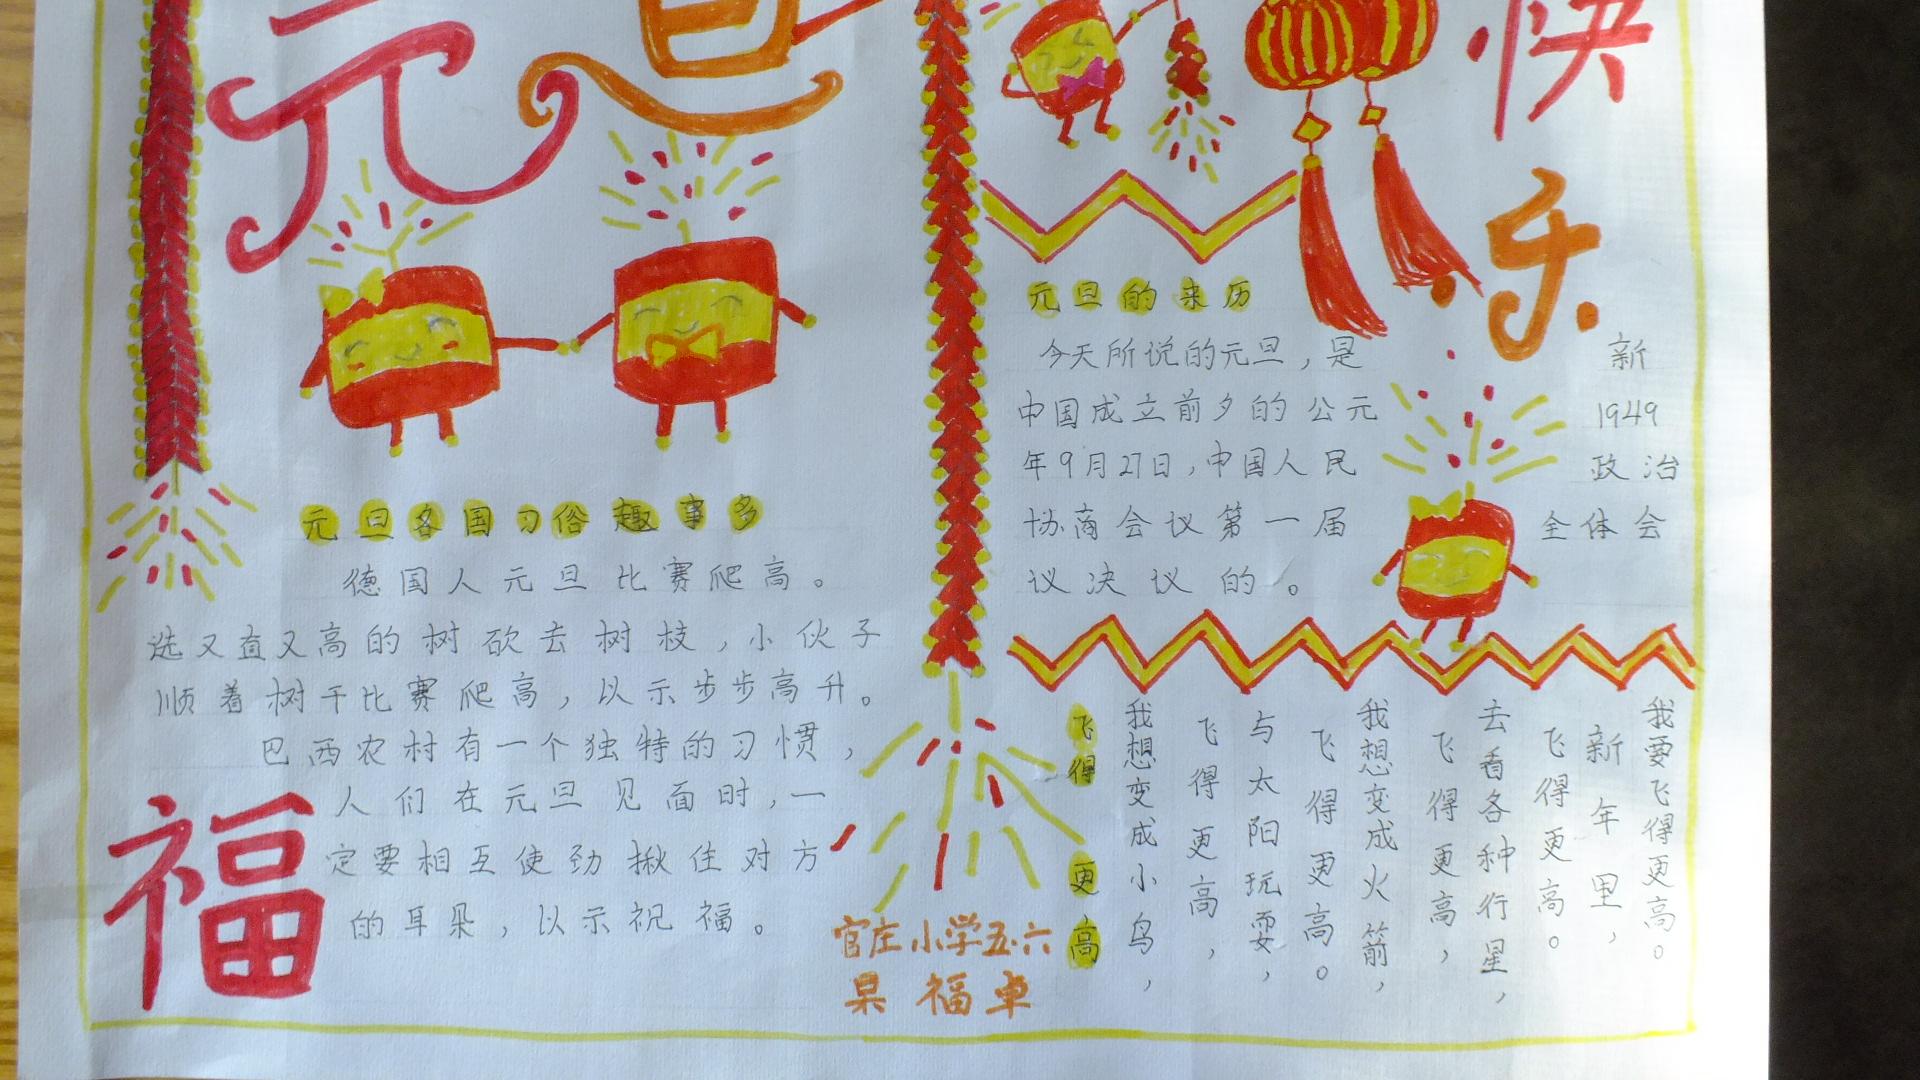 元旦
快乐
元旦各国习俗趣事多
德国人元旦比赛爬高。
选又直又高的树砍去树枝,小伙子
顺着树干比赛爬高,以示步步高升。
巴西农村有一个独特的习惯,
人们在元旦见面时,一
定要相互使劲揪住对方
的耳朵,以示祝福。
福
元旦的来历
今天所说的元旦,是新
中国成立前夕的公元1949
年9月27日,中国人民政治
协商会议第一届全体会
议决议的。
飞得更高
我想变成小鸟,
飞得更高,
与太阳玩耍,
飞得更高。
我想变成火箭,
飞得更高,
去看各种行星,
飞得更高。
新年里,
我要飞得更高。
官庄小学五·六
杲福卓